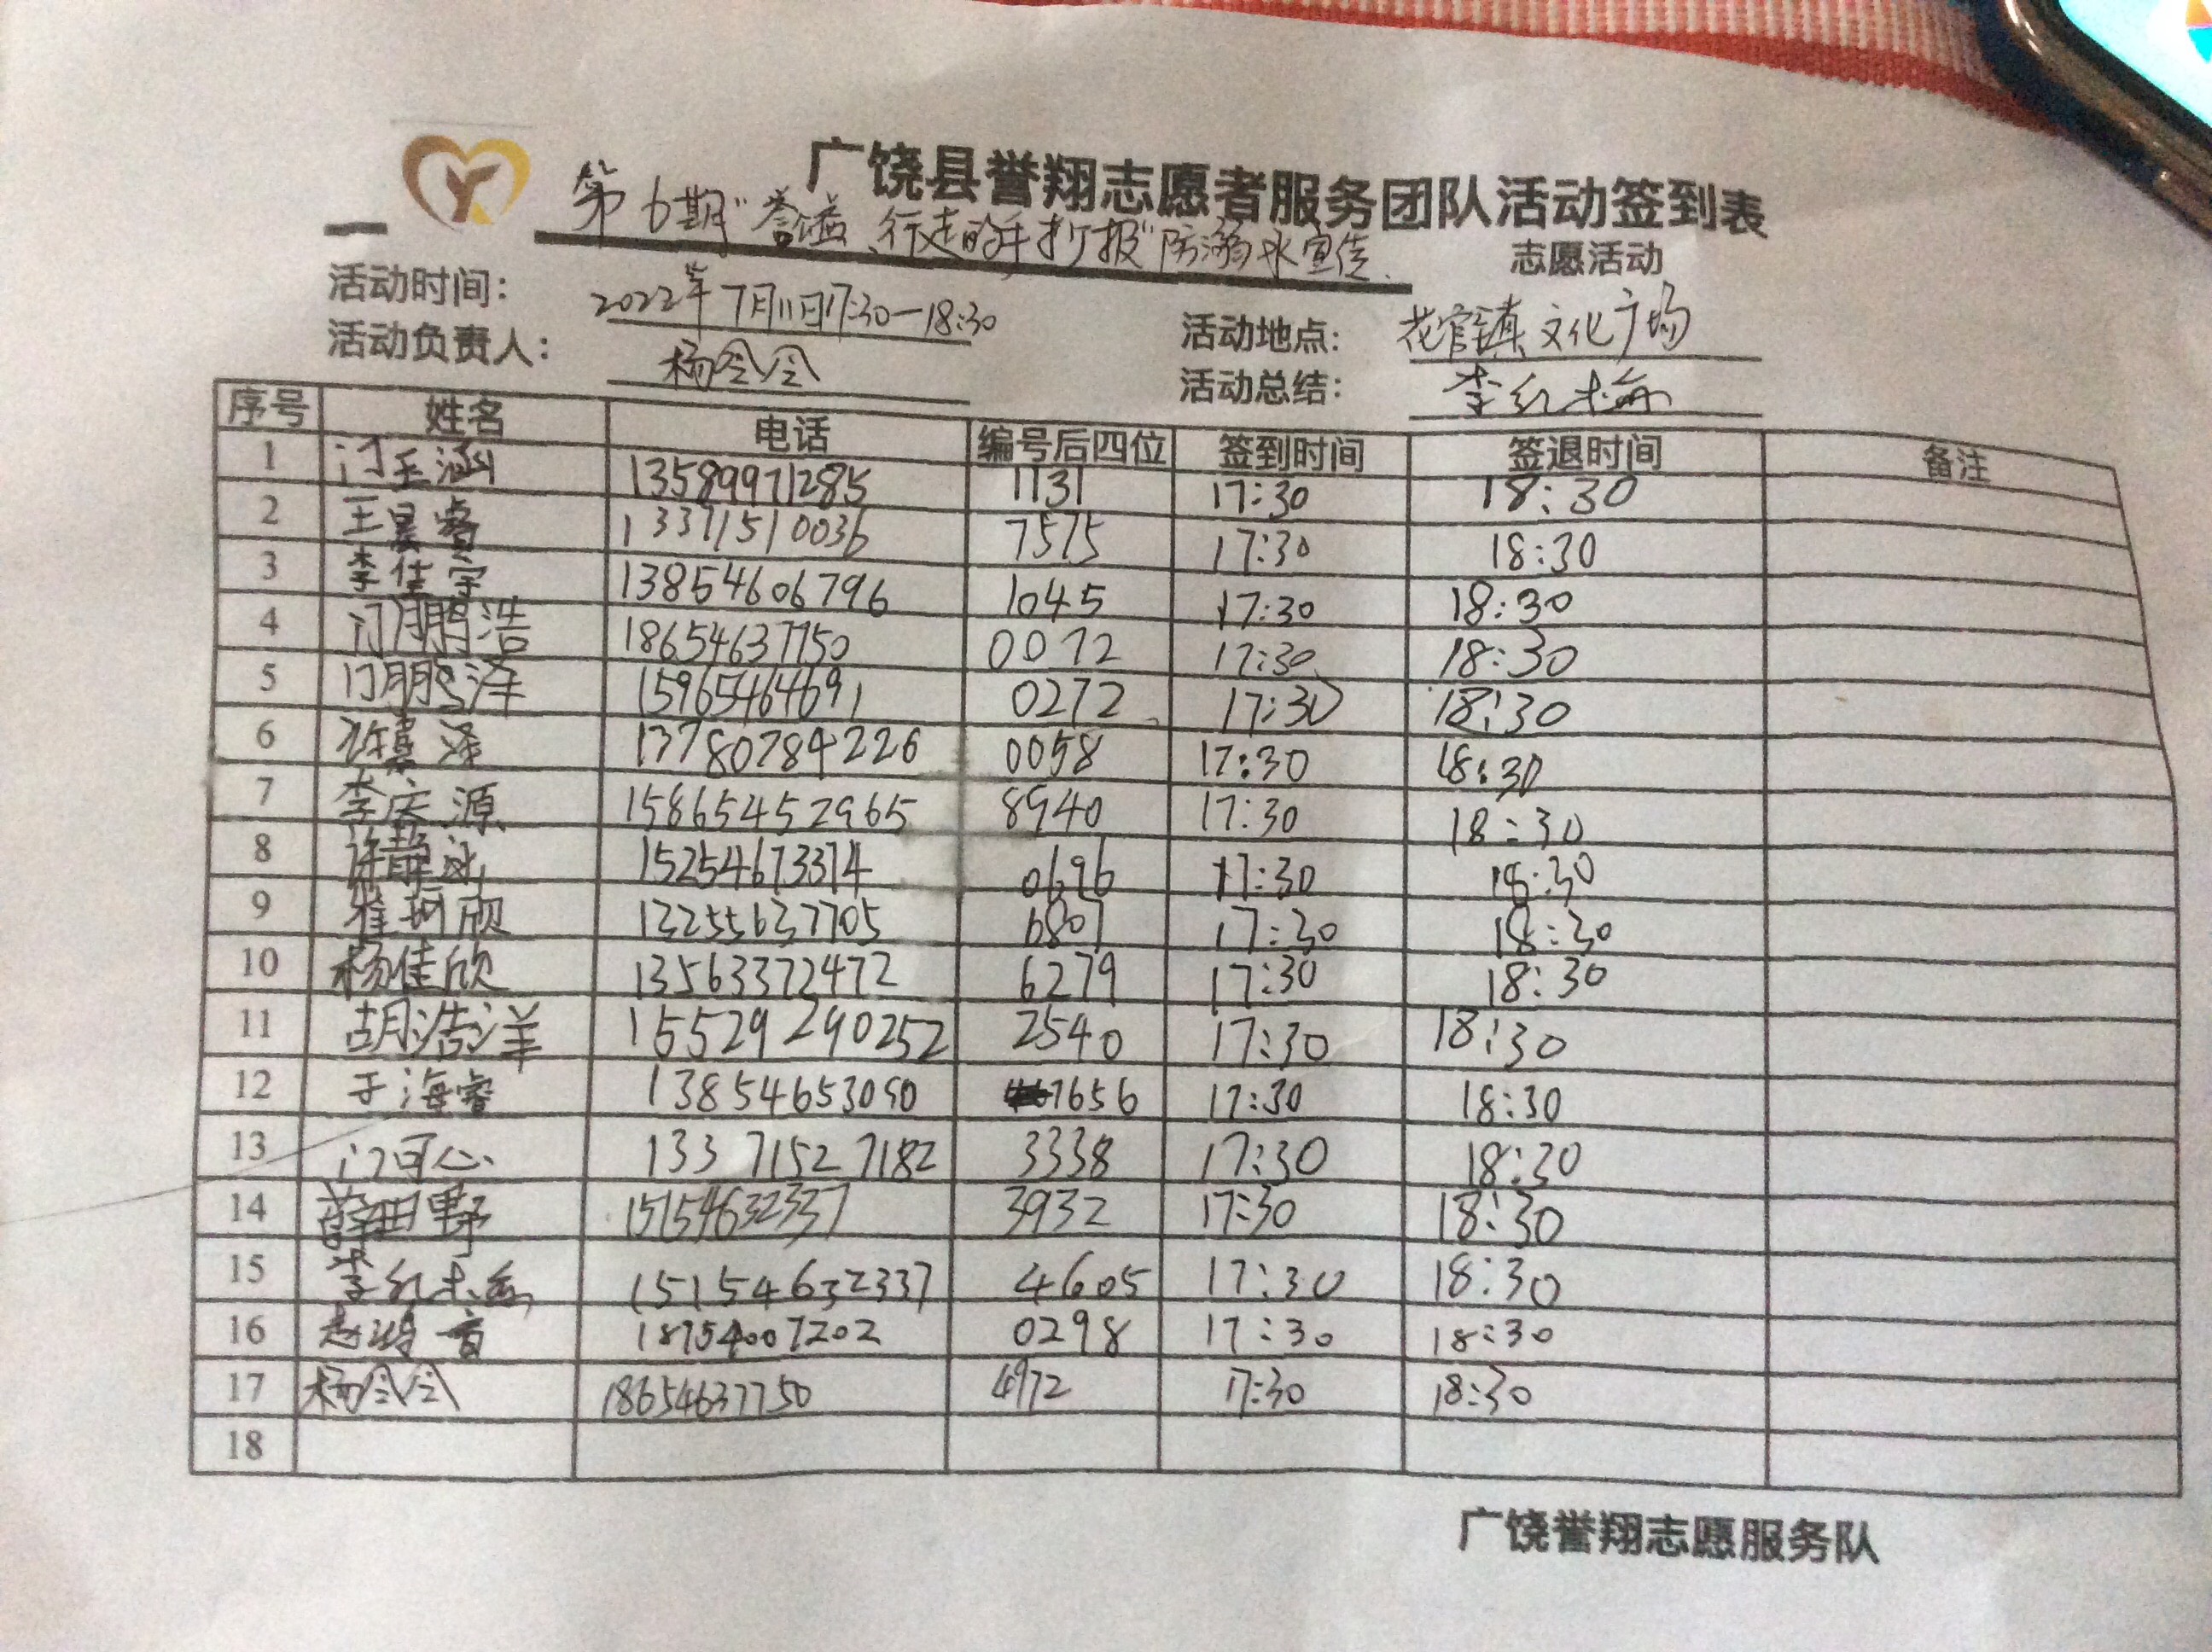 广饶县誉翔志愿者服务团队活动签到表
第6期"誉溢、行走的手抄报"防溺水宣传. 志愿活动
活动时间: 2022年7月11日17:30—18:30 活动地点: 花官镇文化广场
活动负责人: 杨令令 活动总结: 李红梅
序号 姓名 电话 编号后四位 签到时间 签退时间 备注
1 门玉涵 13589971285 1131 17:30 18:30
2 王昊睿 13371510036 7575 17:30 18:30
3 李佳宇 13854606796 1045 17:30 18:30
4 门鹏浩 18654637750 0072 17:30 18:30
5 门鹏泽 15965464691 0272 17:30 18:30
6 13780784226 0058 17:30 18:30
7 李庆源 15865452965 8940 17:30 18:30
8 15254673374 0696 17:30 18:30
9 崔珂欣 13255637705 6807 17:30 18:30
10 杨佳欣 13563372472 6279 17:30 18:30
11 胡浩洋 15529290252 2540 17:30 18:30
12 于海睿 13854653050 7656 17:30 18:30
13 门可心 133 7152 7182 3338 17:30 18:30
14 薛田野 15154632337 3932 17:30 18:30
15 李红梅 15154632337 4605 17:30 18:30
16 18754007202 0298 17:30 18:30
17 杨令令 18654637750 4972 17:30 18:30
18
广饶誉翔志愿服务队